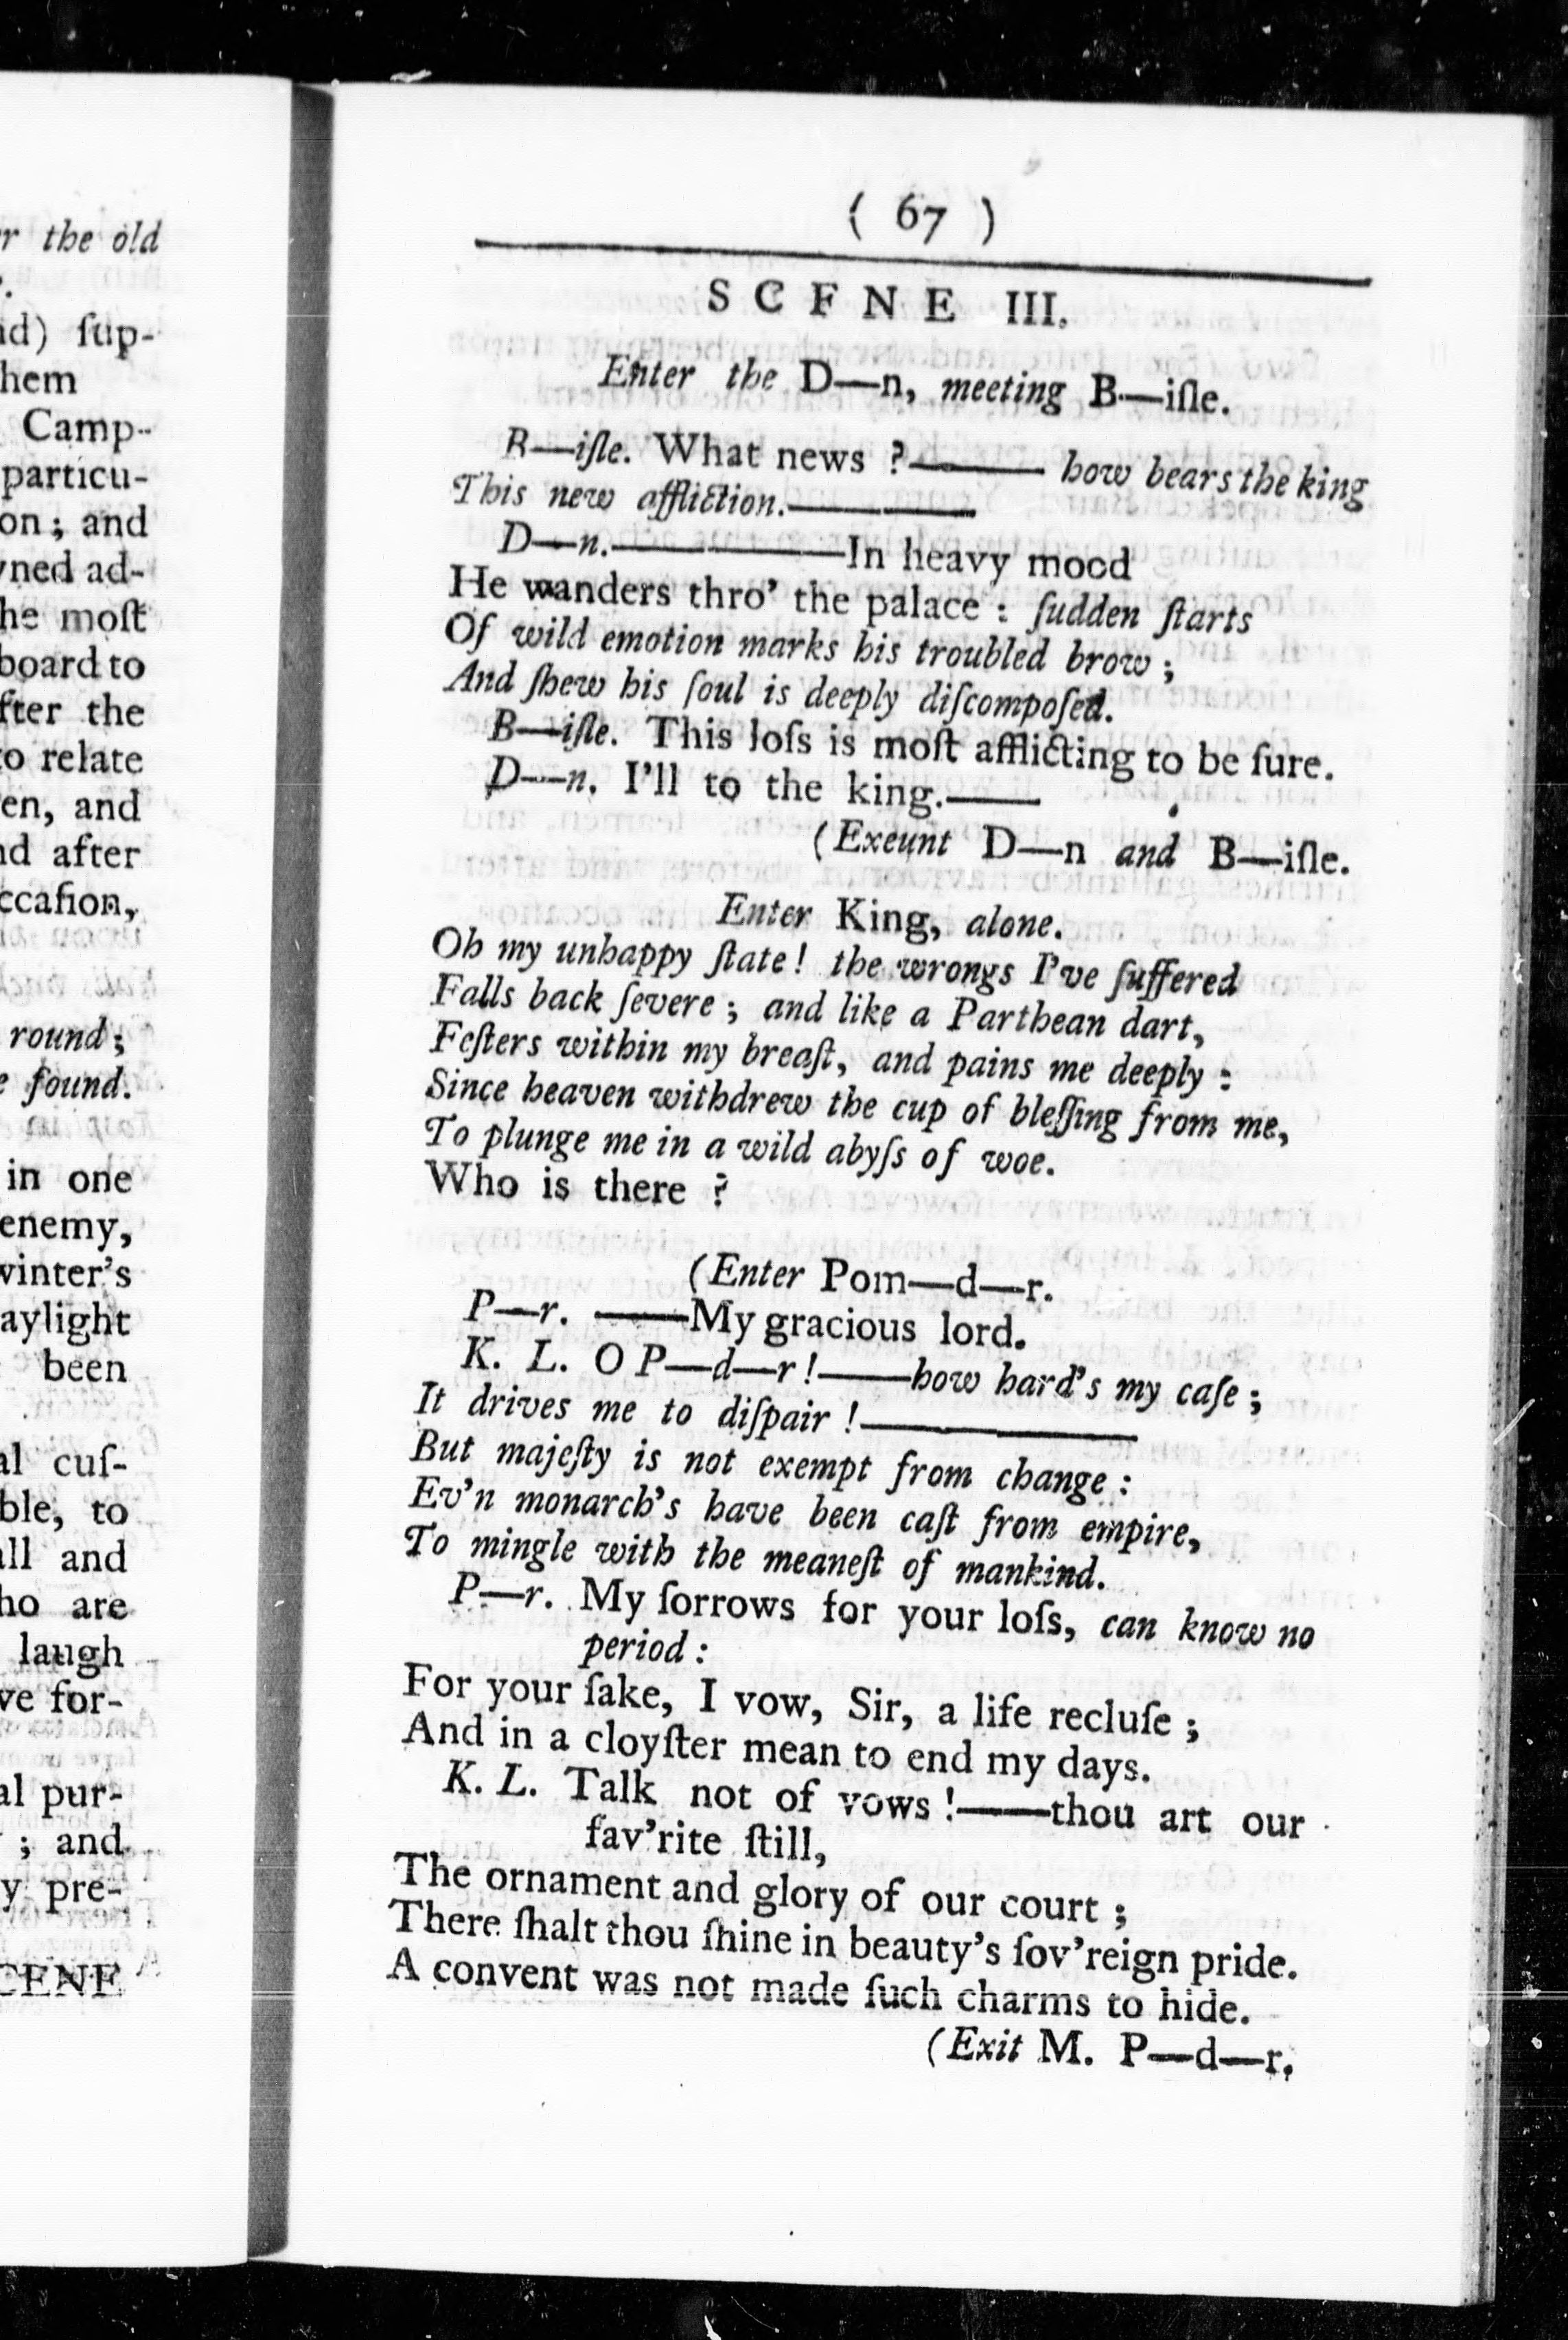 r the old
id) ſup-
hem
Camp-
particu-
on; and
ned ad-
he moſt
board to
fter the
to relate
en, and
nd after
ccaſion,
round;
e found.
in one
enemy,
winter's
aylight
been
al cuſ-
ble, to
all and
ho are
laugh
ve for-
al pur-
; and
y pre-
CENE
( 67 )
SCFNE III.
Enter the D—n, meeting B—iſle.
B—iſle. What news ?——— how bears the king
This new affliction.————
D—n.—————In heavy mood
He wanders thro' the palace : ſudden ſtarts
Of wild emotion marks his troubled brow ;
And ſhew his ſoul is deeply diſcompoſed.
B—iſle. This loſs is moſt afflicting to be ſure.
D—n. I'll to the king.——
(Exeunt D—n and B—iſle.
Enter King, alone.
Oh my unhappy ſtate! the wrongs I've ſuffered
Falls back ſevere ; and like a Parthean dart,
Feſters within my breaſt, and pains me deeply :
Since heaven withdrew the cup of bleſſing from me,
To plunge me in a wild abyſs of woe.
Who is there ?
(Enter Pom—d—r.
P—r. ——My gracious lord.
K. L. O P—d—r !——how hard's my caſe ;
It drives me to diſpair !——————
But majeſty is not exempt from change :
Ev'n monarch's have been caſt from empire,
To mingle with the meaneſt of mankind.
P—r. My ſorrows for your loſs, can know no
period :
For your ſake, I vow, Sir, a life recluſe ;
And in a cloyſter mean to end my days.
K. L. Talk not of vows !——thou art our
fav'rite ſtill,
The ornament and glory of our court ;
There ſhalt thou ſhine in beauty's ſov'reign pride.
A convent was not made ſuch charms to hide.
(Exit M. P—d—r.